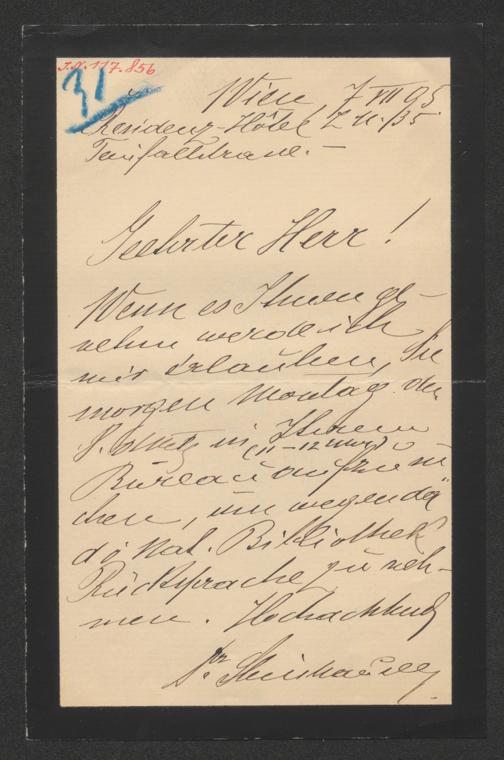 I.N. 117.856
31
Wien 7 VII 95
Residenz-Hôtel Z u. 135
Teinfaltstrasse.-
Geehrter Herr!
Wenn es Ihnen ge-
nehm werde ich
mir erlauben, Sie
morgen Montag den
8. in Ihrem
(11-12 Uhr)
Bureau aufzusu
chen, um wegen der
Nat. Bibliothek
Rücksprache zu neh-
men. Hochachtend
Dr.